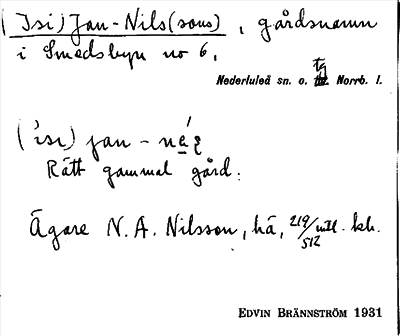 (Isi) Jan-Nils(sons), gårdsnamn
i Smedsbyn no 6,
Nederluleå sn. o. tg Norrb. l.
('isi) jan-
Rätt gammal gård.
Ägare N. A. Nilsson, hä, 219/512 mtl. kh.
EDVIN BRÄNNSTRÖM 1931